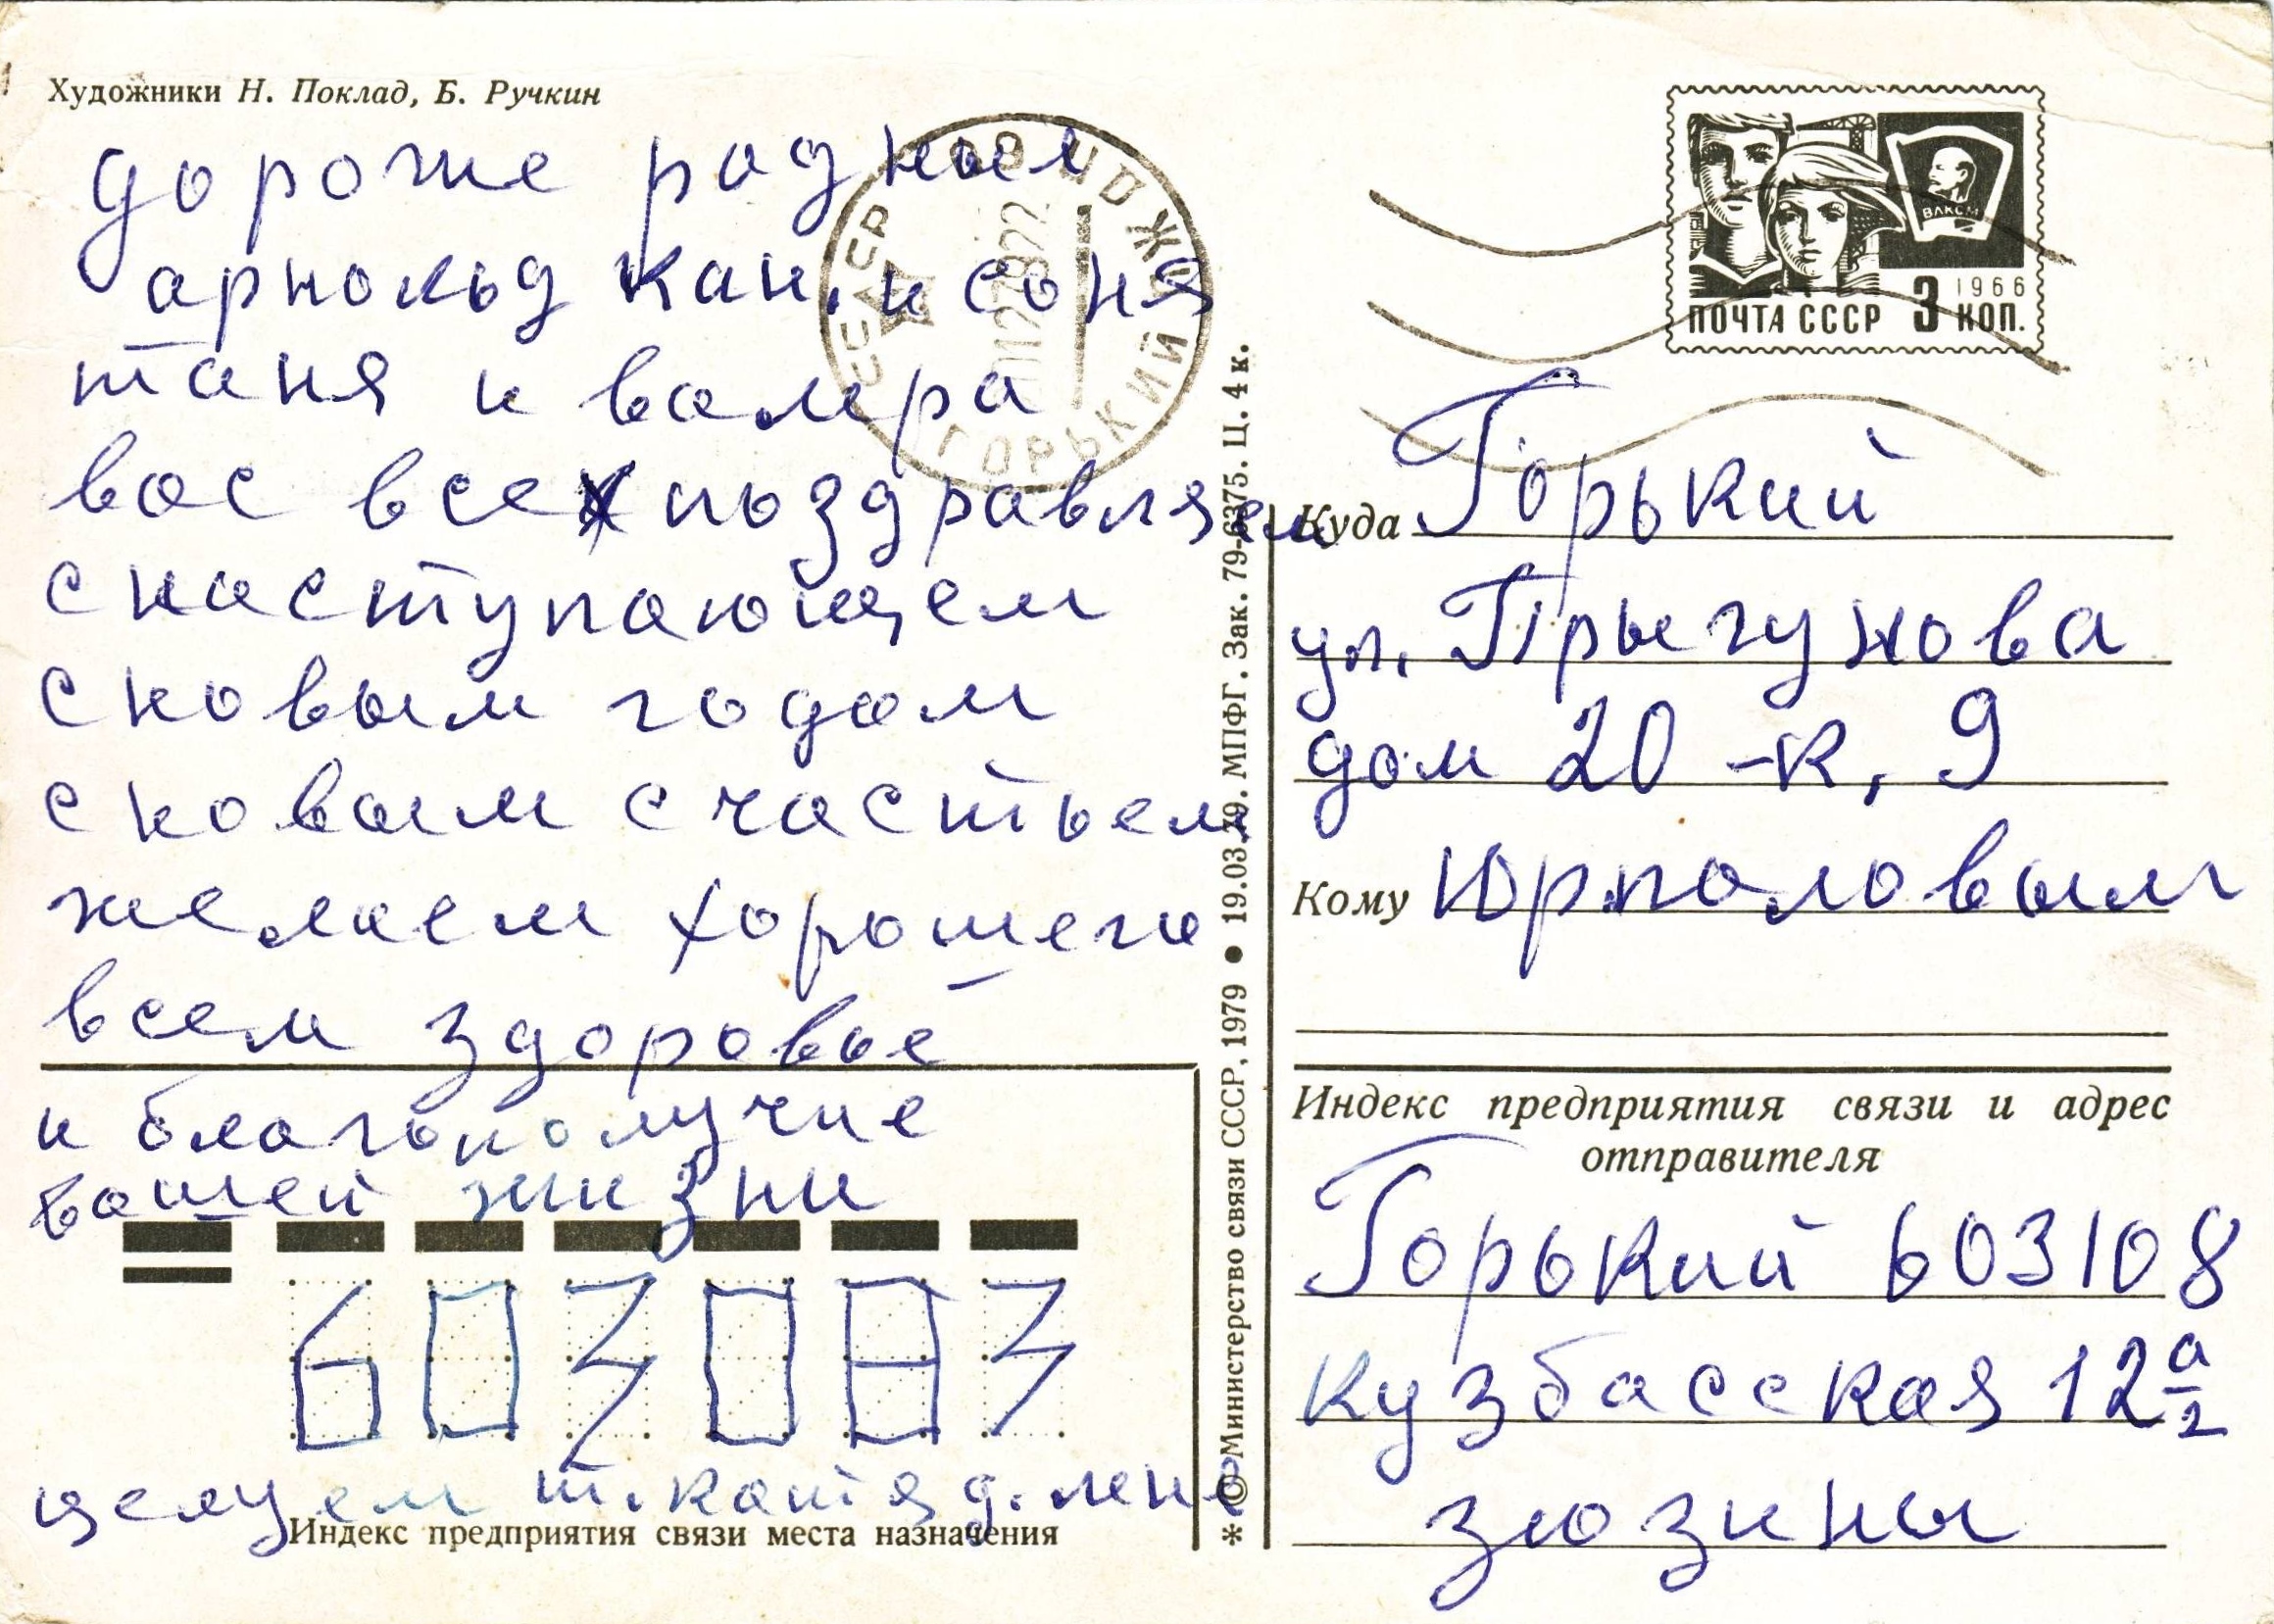 Художники Н. Поклад, Б. Ручкин
дороже родных
арнольд кан. и соня
таня и валера
вас всех поздравляем
снаступающем
сновым годом
сновым счастьем
желаем хорошего
всем здоровье
и благополучие
вашей жизни
603083
целуем т. катя д. лене
Индекс предприятия связи места назначения
СССР
ГОРЬКИЙ
* © Министерство связи СССР, 1979 ● 19.03.79. МПФГ. Зак. 79-6375. Ц. 4 к.
ВЛКСМ
1966
ПОЧТА СССР 3 КОП.
Куда Горький
ул. Прыгунова
дом 20 -к, 9
Кому Юрполовым
Индекс предприятия связи и адрес
отправителя
Горький 603108
кузбасская 12 а/2
зюзины